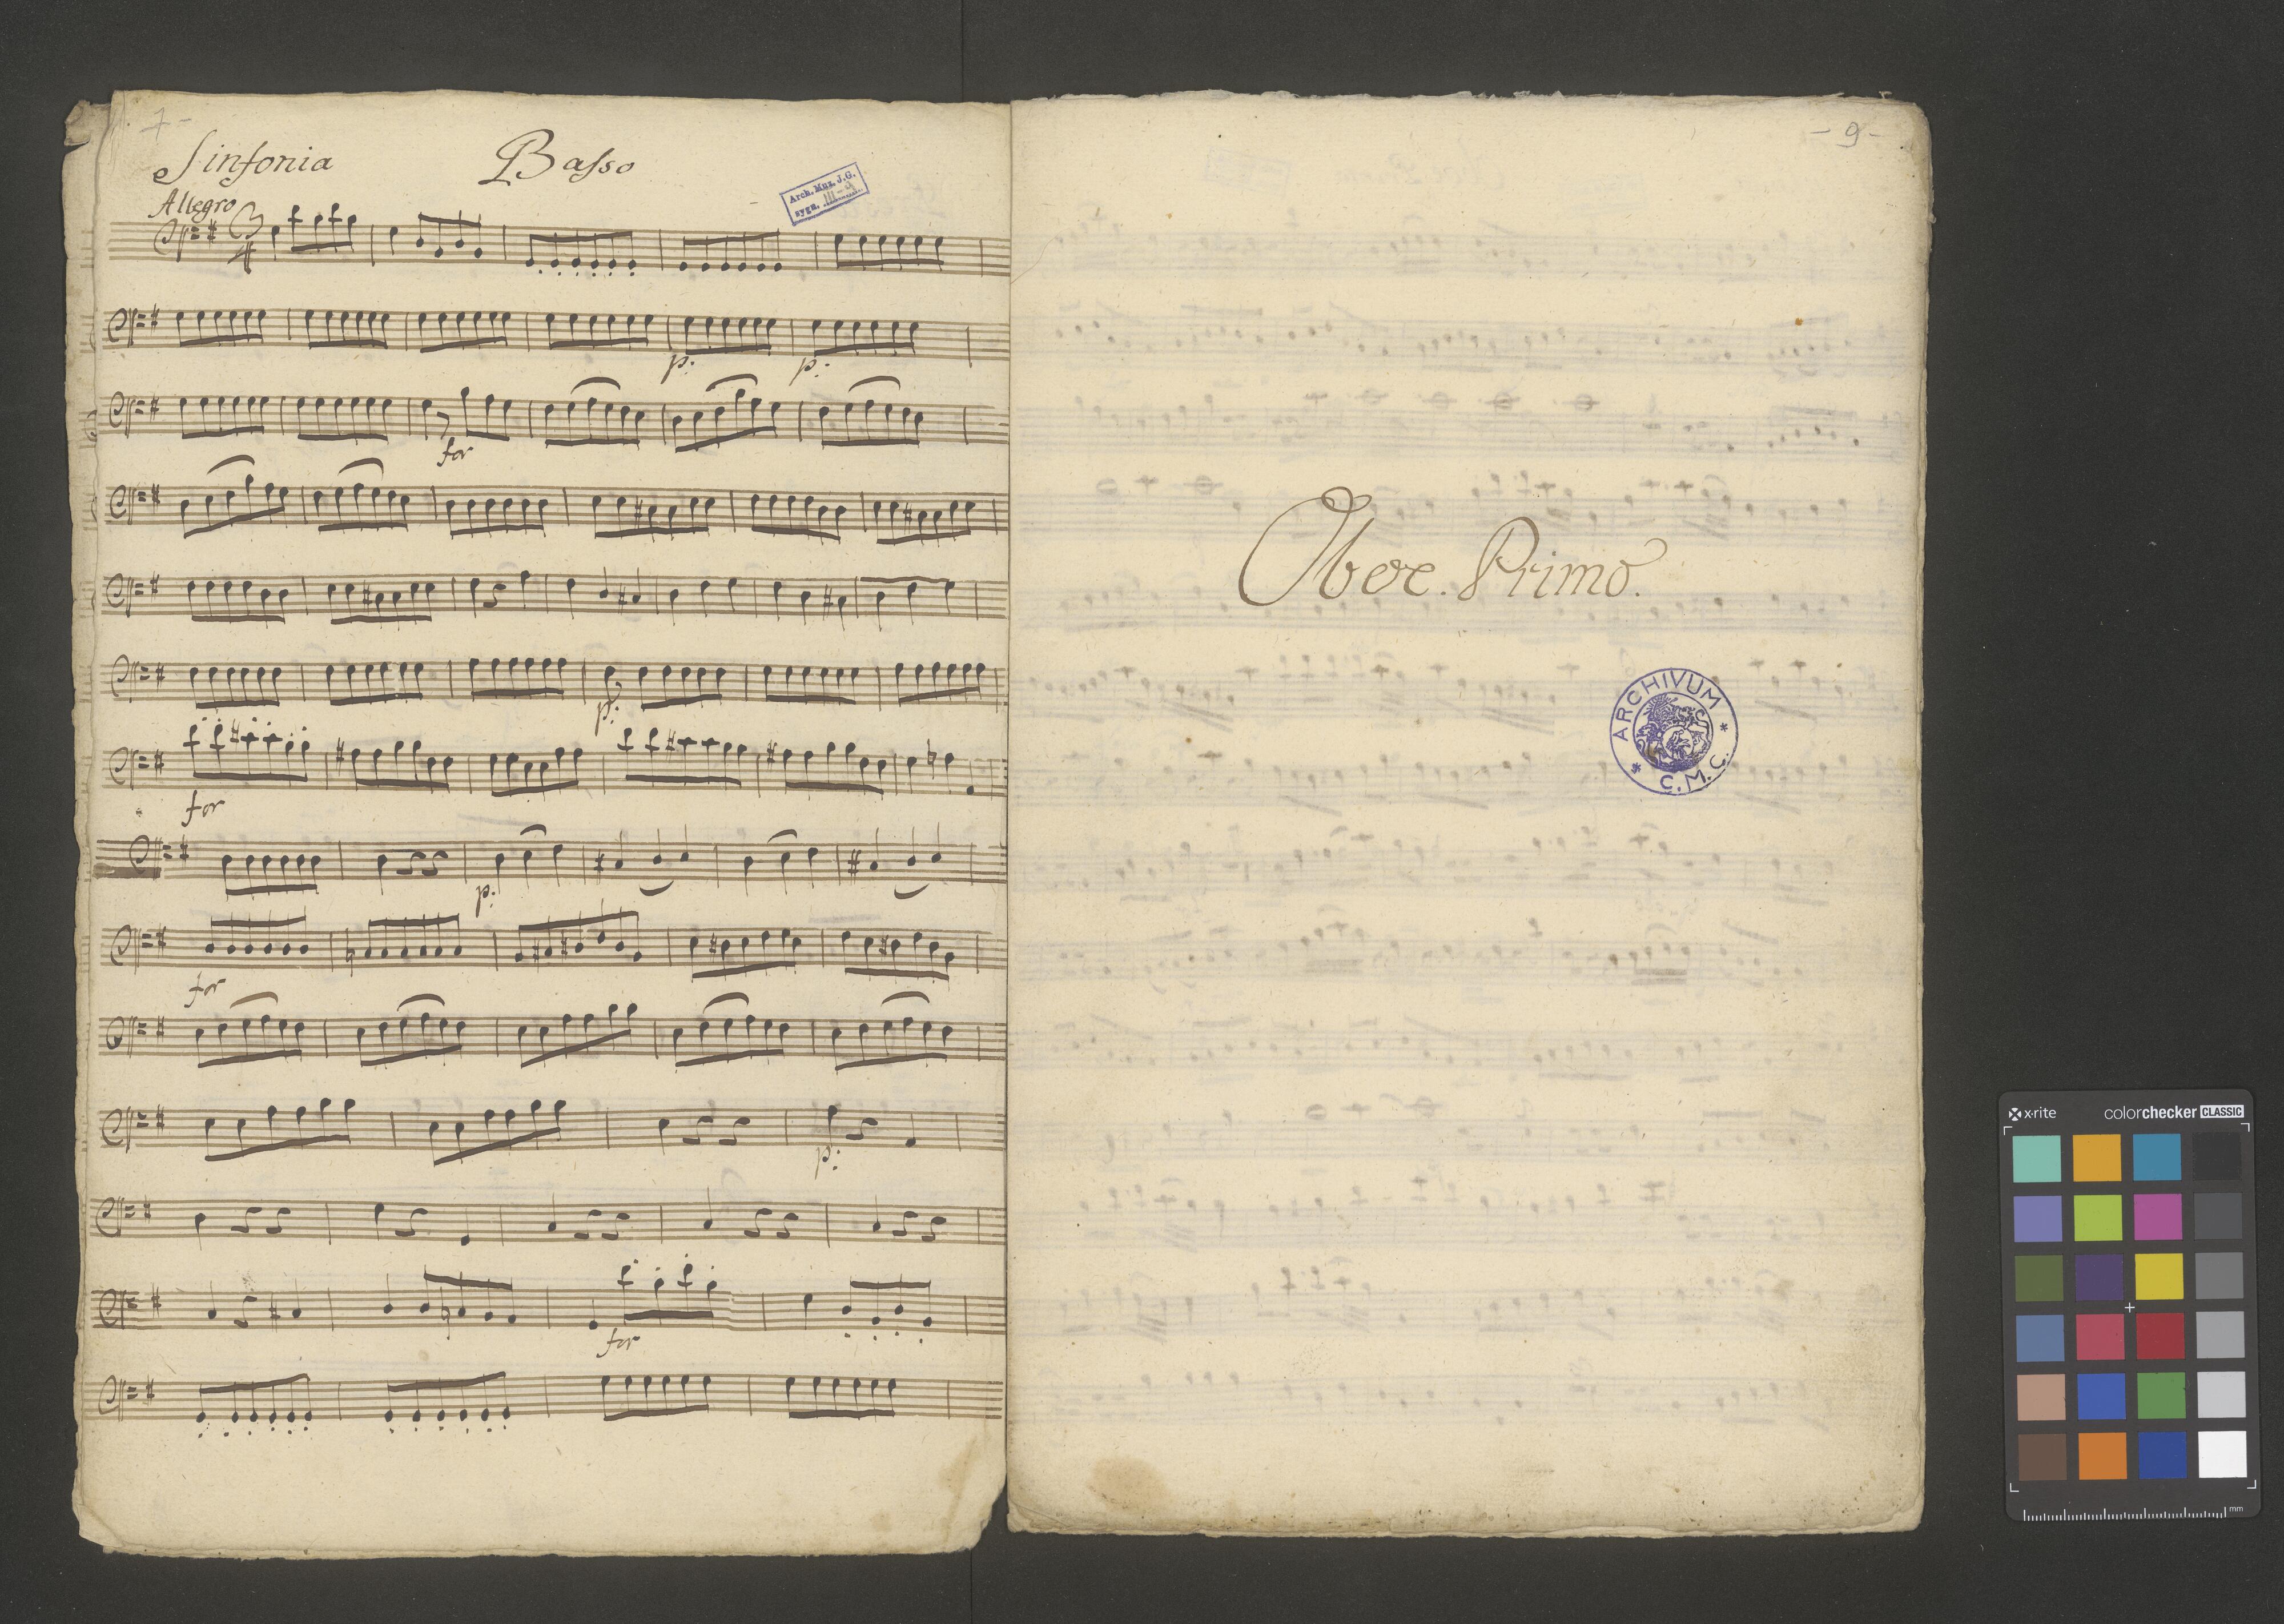 7-
Sinfonia Basso
Arch. Muz. J.G.
sygn. III-9
Allegro
3
4
p: p:
for
p:
for
p:
for
p:
for
- 9 -
Oboe. Primo.
ARCHIVUM
* C.M.C. *
x-rite colorchecker CLASSIC
mm